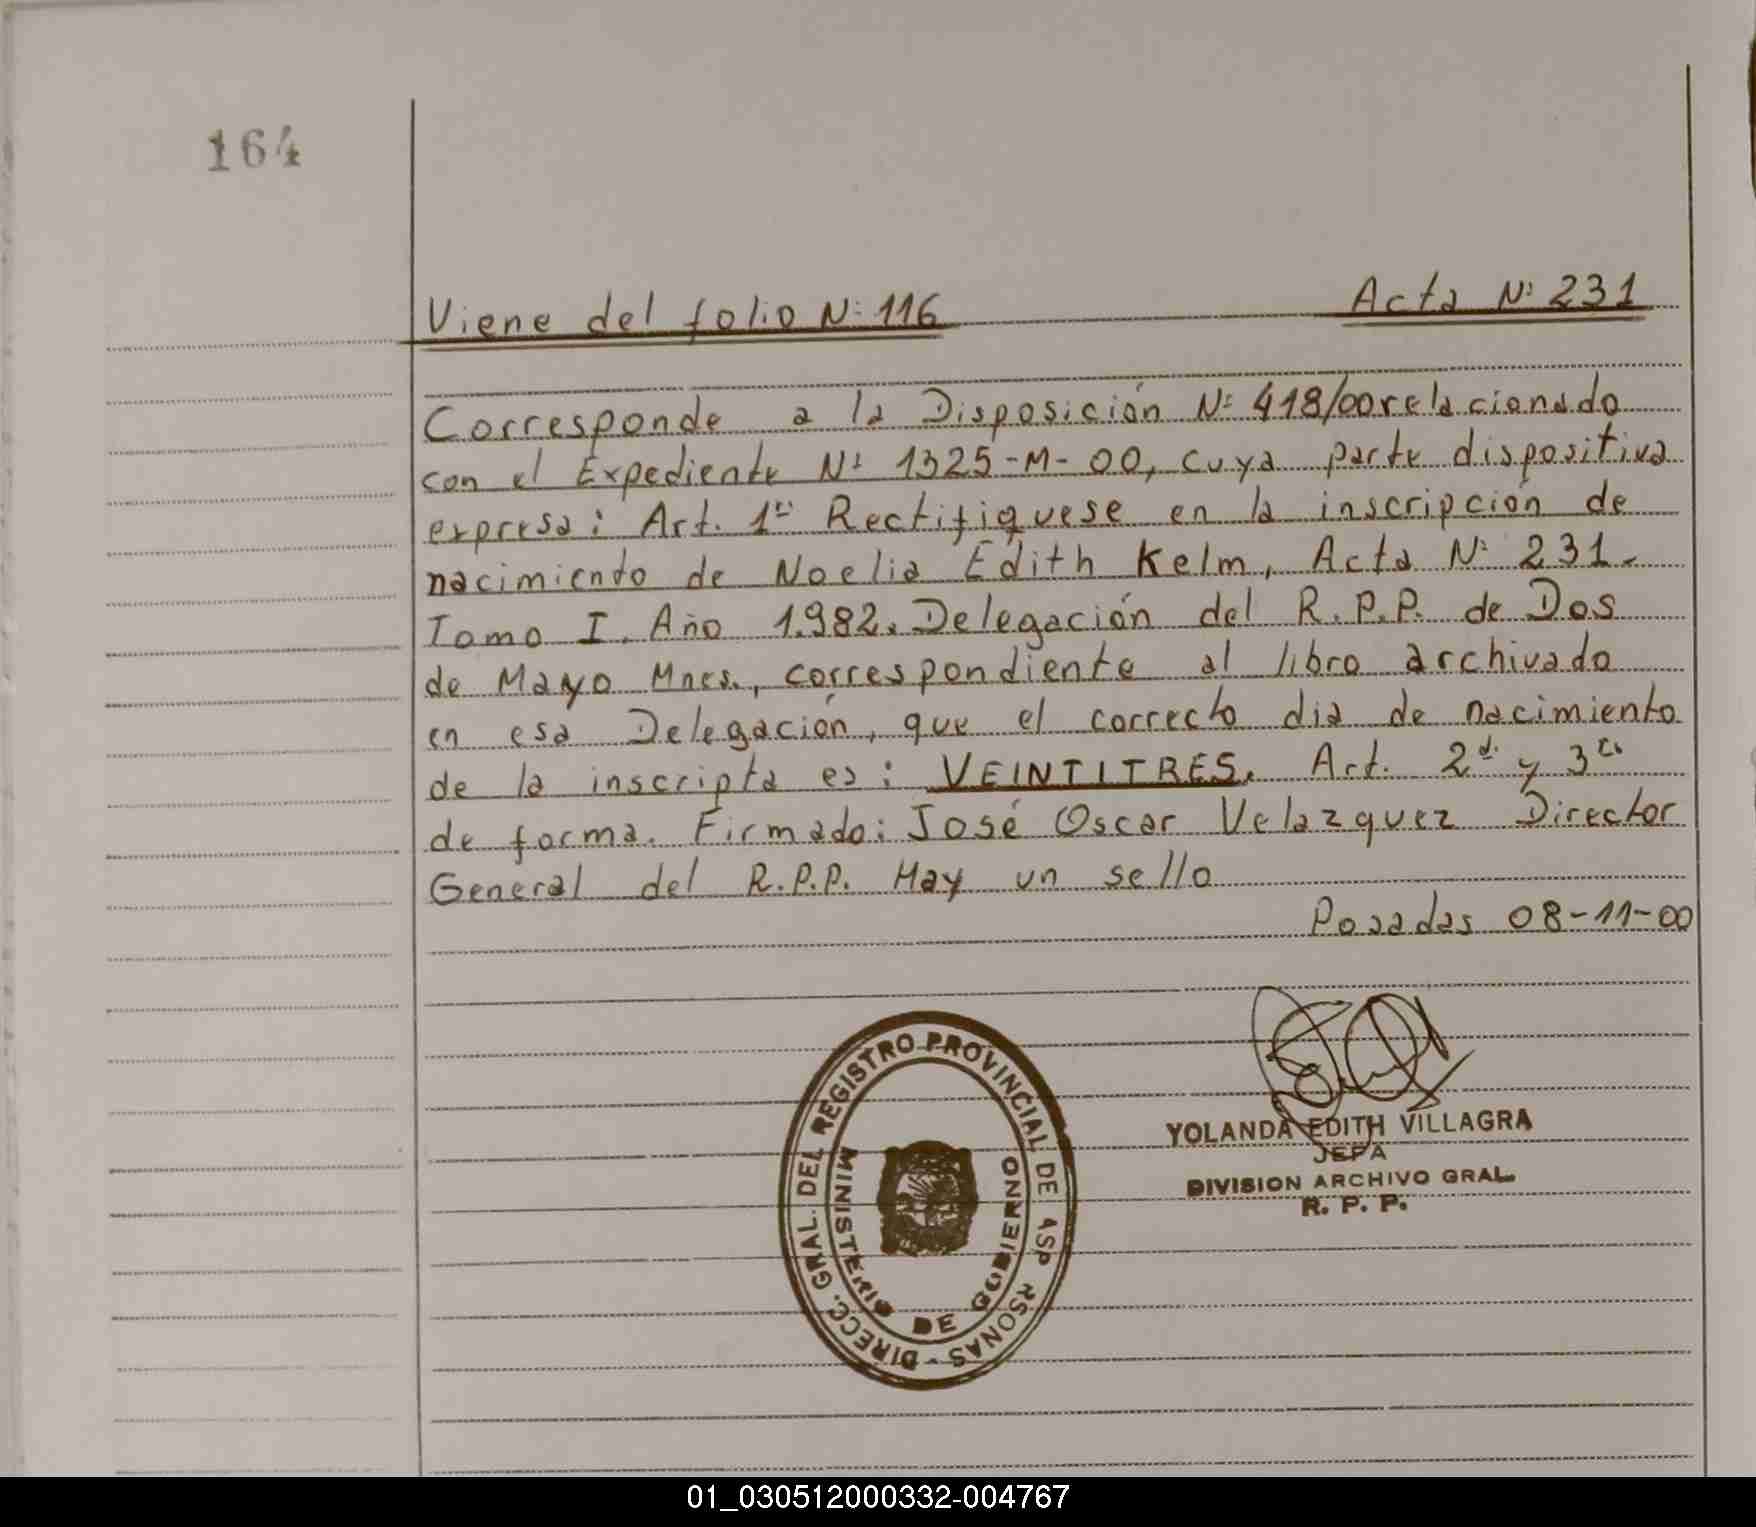 164
Viene del folio Nº 116
Acta Nº 231
Corresponde a la Disposición Nº 418/00 relacionado
con el Expediente Nº 1325-M-00, cuya parte dispositiva
expresa: Art. 1º Rectifiquese en la inscripción de
nacimiento de Noelia Edith Kelm, Acta Nº 231.
Tomo I. Año 1.982. Delegación del R.P.P. de Dos
de Mayo Mnes., correspondiente al libro archivado
en esa Delegación, que el correcto dia de nacimiento
de la inscripta es: VEINTITRES. Art. 2º y 3º
de forma. Firmado: José Oscar Velazquez Director
General del R.P.P. Hay un sello
Posadas 08-11-00
DIRECC. GRAL. DEL REGISTRO PROVINCIAL DE LAS PERSONAS -
MINISTERIO DE GOBIERNO
YOLANDA EDITH VILLAGRA
JEFA
DIVISION ARCHIVO GRAL.
R. P. P.
01_030512000332-004767